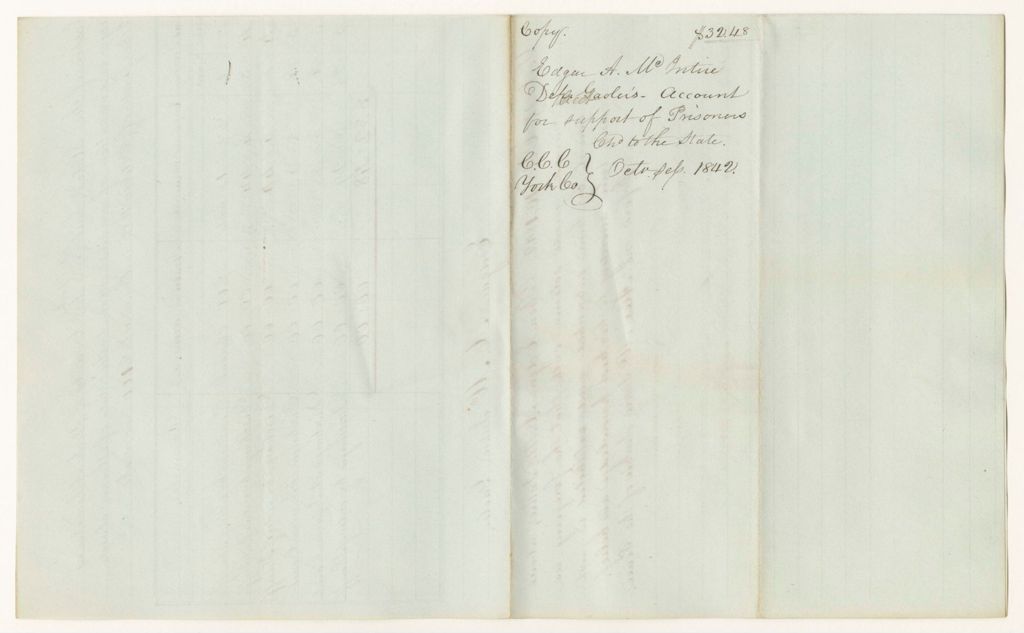 Copy. $32.48
Edgar A. Mc Intire
Gaoler's - Account
for support of Prisoners
Chd to the State.
C.C.C
York Co } Octo. Sess. 1842.